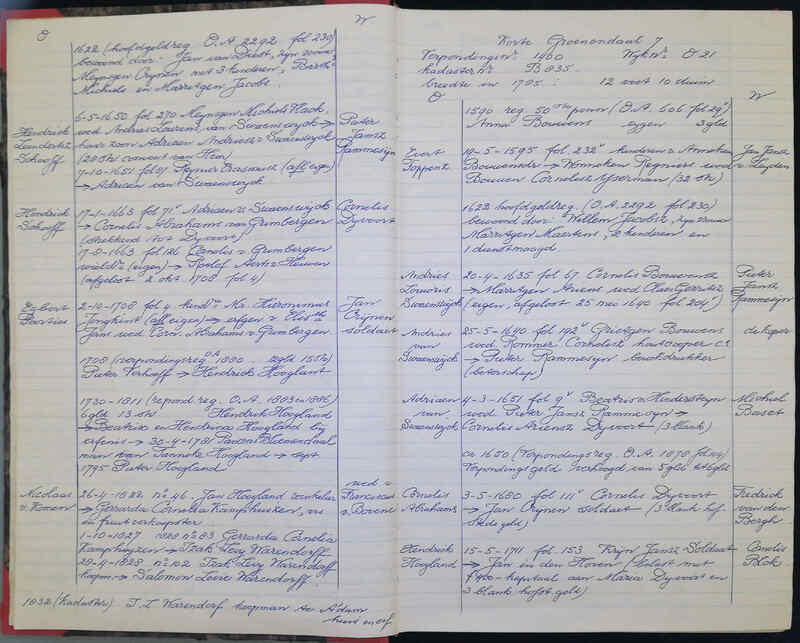 O
W
1622 (hoofdgeldreg. O.A. 2292 fol 230)
bewoond door: Jan van Diest, zyn vrouw
Meynsgen Crynen met 3 kinderen, Barth
Michiels en Marritgen Jacobs.
Hendrick
Leendertsz
Schooff
6-5-1650 fol 270 Meynsgen Michiels Haak,
wed Andries Laurentz van Swaenswyck →
haar zoon Adriaen Andriesz v Swaenswyck
7-10-1651 fol 91 (afl eigen)
→ Adriaen van Swaenswyck
Pieter
Jansz
Rammesyn
Hendrick
Schooff
17-1-1663 fol 71v Adriaen v Swaenswyck
→ Cornelis Abrahams van Grimbergen
(strekkend tot Dyvoort)
17-8-1663 fol 126 Cornelis v Grimbergen
(eigen) → Roelof Aertsz
(afgelost 2 okt 1708 fol 4)
Cornelis
Dyvoort
Egbert
2-10-1708 fol 4 kindn Mr. Hieronimus
Jongkint (afl eigen) → erfgen v Elisth
Jans wed Corn. Abrahams v Grimbergen.
Jan
Crynen
soldaat
1708 (verpondingsreg O.A. 1880
Pieter Verhoeff → Hendrick Hooglant
1730-1811 (verpond reg. O.A. 1883 en 1886)
6 gld 13 st Hendrik Hoogland
→ Beatrix en Hendrina Hoogland bij
erfenis → 30-4-1781 Bloemendaal
man van Janneke Hoogland → sept
1795 Pieter Hoogland
Nicolaas
26-4-1822 no 46. Jan Hoogland winkelier
→ Gerrarda Cornelia Kamphuizen,
en fruitverkoopster
1-10-1827 no 83 Gerrarda Cornelia
Kamphuyzen → Izak Levy Warendorff
29-4-1828 no 102 Izak Levy Warendorff
koopm → Salomon Levie Warendorff
wed v
Franciscus
v Bovene
1832 (Kadaster) I. L. Warendorf koopman te A'dam
huis en erf
Korte Groenendaal 7
Verpondingsnr. 1960 Wyknr. O 21
Kadasternr. B 835
breedte in 1785: 12 voet 10 duim
O
W
1590 reg 50ste penn (O.A. 606 fol 29v)
Anna Bouwens eygen 3 gld
Evert
Toppen
10-5-1595 fol 232v kinderen v Anneken
Bouwensdr → Wenneken Regniers wed
Bouwen Cornelisz Yserman (32 st)
Jan Jansz
v Leyden
1622 hoofdgeldreg. (O.A. 2292 fol 230)
bewoond door: Willem Jacobsz, zyn vrouw
Marritgen Maertens, 2 kinderen en
1 dienstmaagd
Andries
Louwris
Swaenswyck
20-4-1635 fol 67 Cornelis Bouwensz
→ Marritgen Ariens wed Claes Gerritsz
(eigen, afgelost 25 mei 1640 fol 204v)
Pieter
Jansz
Rammesyn
Andries
van
Swaenswyck
25-5-1640 fol 192v Grietgen Bouwens
wed Rommer houtcooper c.s
→ Pieter Rammesyn boeckdrukker
(beterschap)
de koper
Adriaen
van
Swaenswyck
4-3-1651 fol 9v Beatrix
wed Pieter Jansz Rammesyn →
Cornelis Ariensz Dyvoort (3 blank)
Michiel
Baset
ca 1650 (Verpondings reg. O.A. 1878
Verpondings geld verhoogd van 5 gld
Cornelis
Abrahams
3-5-1680 fol 111v Cornelis Dyvoort
→ Jan Crynen soldaat (3 blank hof-
stede geld)
Fredrick
van den
Bergh
Hendrick
Hoogland
15-5-1711 fol. 153 Kryn Jansz Soldaat
→ Jan in den Hoven (belast met
f 400.- kapitaal aan Maria Dyvoort en
3 blank hofst. geld)
Cornelis
Blok